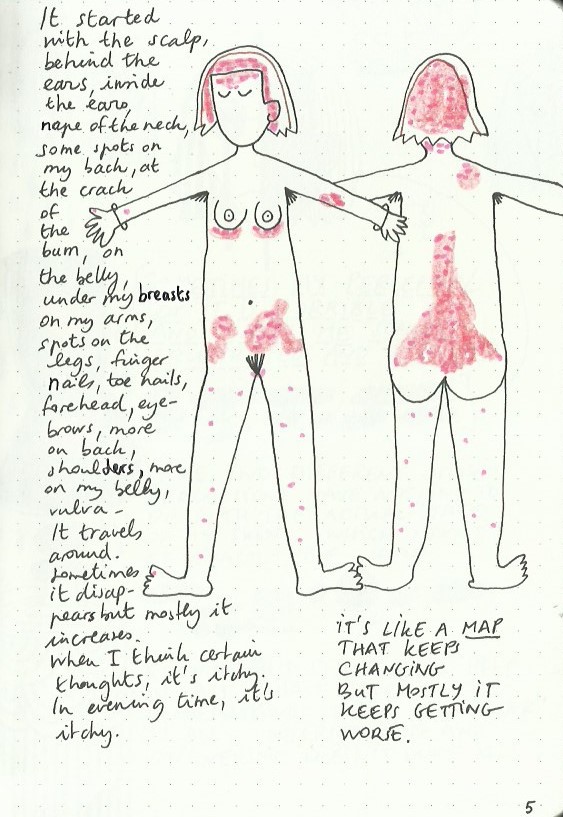 It started
with the scalp,
behind the
ears, inside
the ears,
nape of the neck,
some spots on
my back, at
the crack
of
the
bum, on
the belly,
under my breasts
on my arms,
spots on the
legs, finger
nails, toe nails,
forehead, eye-
brows, more
on back,
shoulders, more
on my belly,
vulva -
It travels
around.
Sometimes
it disap-
pears but mostly it
increases.
When I think certain
thoughts, it's itchy.
In evening time, it's
itchy.
IT'S LIKE A MAP
THAT KEEPS
CHANGING
BUT MOSTLY IT
KEEPS GETTING
WORSE.
5